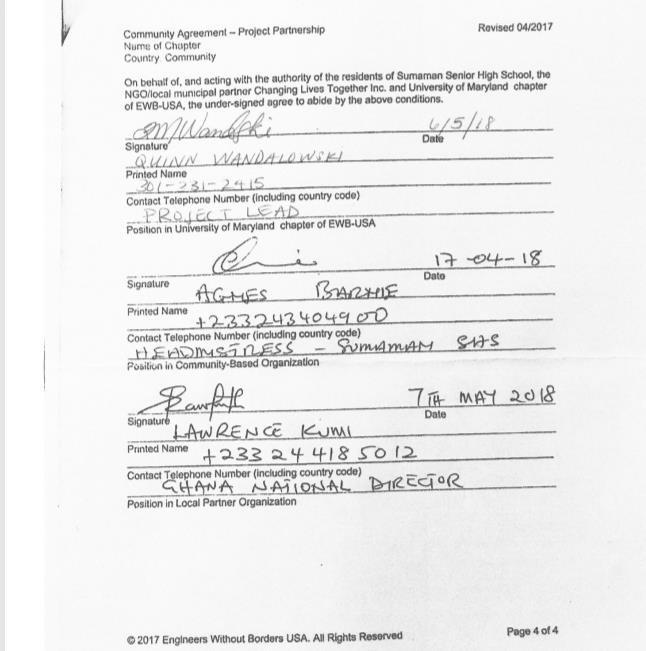 Community Agreement – Project Partnership
Revised 04/2017
Name of Chapter
Country Community
On behalf of, and acting with the authority of the residents of Sumaman Senior High School, the
NGO/local municipal partner Changing Lives Together Inc. and University of Maryland chapter
of EWB-USA, the under-signed agree to abide by the above conditions.
6/5/18
Signature
Date
QUINN WANDALOWSKI
Printed Name
301-231-2415
Contact Telephone Number (including country code)
PROJECT LEAD
Position in University of Maryland chapter of EWB-USA
17-04-18
Signature
Date
AGNES BARHIE
Printed Name
+233243404900
Contact Telephone Number (including country code)
HEADMISTRESS - SUMAMAN SHS
Position in Community-Based Organization
7TH MAY 2018
Signature
Date
LAWRENCE KUMI
Printed Name
+233 24 4185012
Contact Telephone Number (including country code)
GHANA NATIONAL DIRECTOR
Position in Local Partner Organization
© 2017 Engineers Without Borders USA. All Rights Reserved
Page 4 of 4